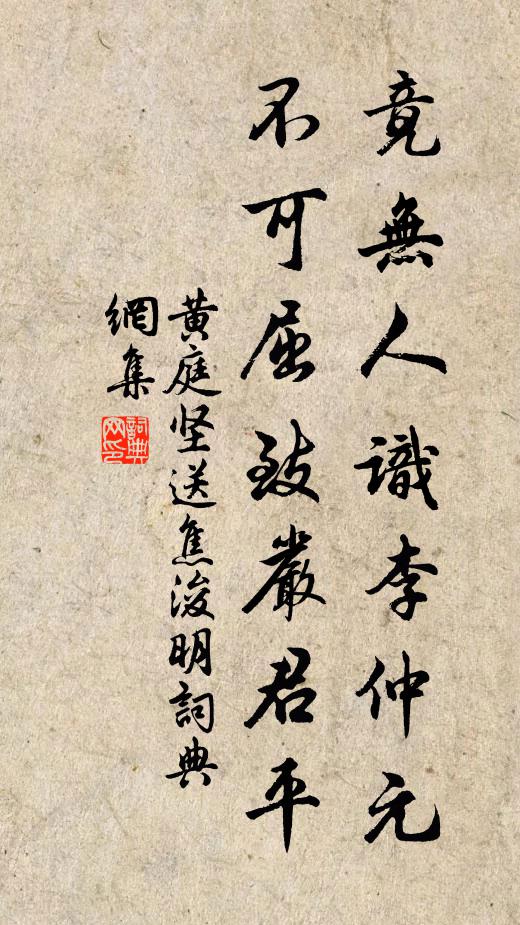 竟無人識李仲元
不可屈致嚴君平
黄庭坚送焦浚明詞典
網集
詞典
网印